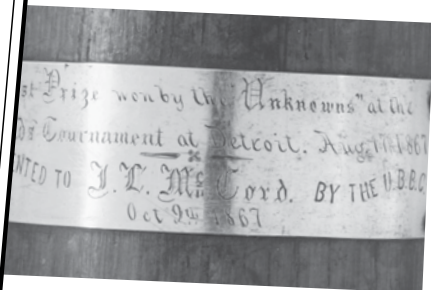 st Prize won by the "Unknowns" at the
ds Tournament at Detroit. Aug. 17 1867
NTED TO J. L. Mc Cord. BY THE U.B.B.C
Oct 9th 1867